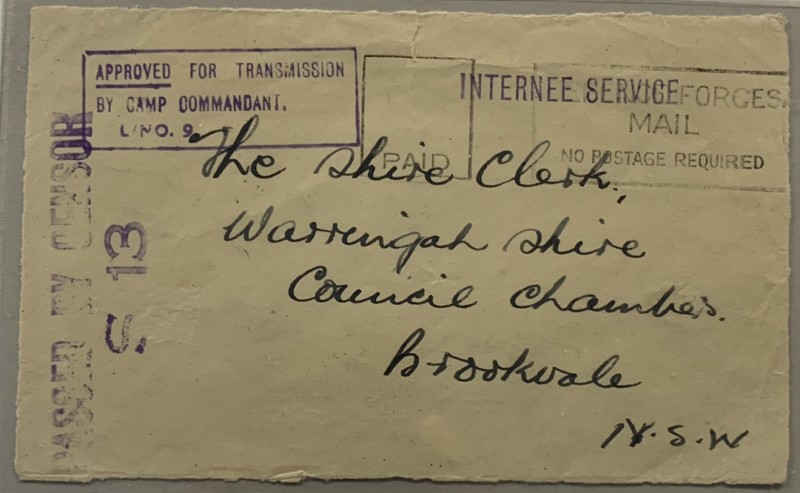 APPROVED FOR TRANSMISSION
BY CAMP COMMANDANT.
L/NO. 9
PAID
INTERNEE SERVICE
FORCES
MAIL
NO POSTAGE REQUIRED
PASSED BY CENSOR
S 13
The Shire Clerk,
Warringah Shire
Council Chambers.
Brookvale
N.S.W